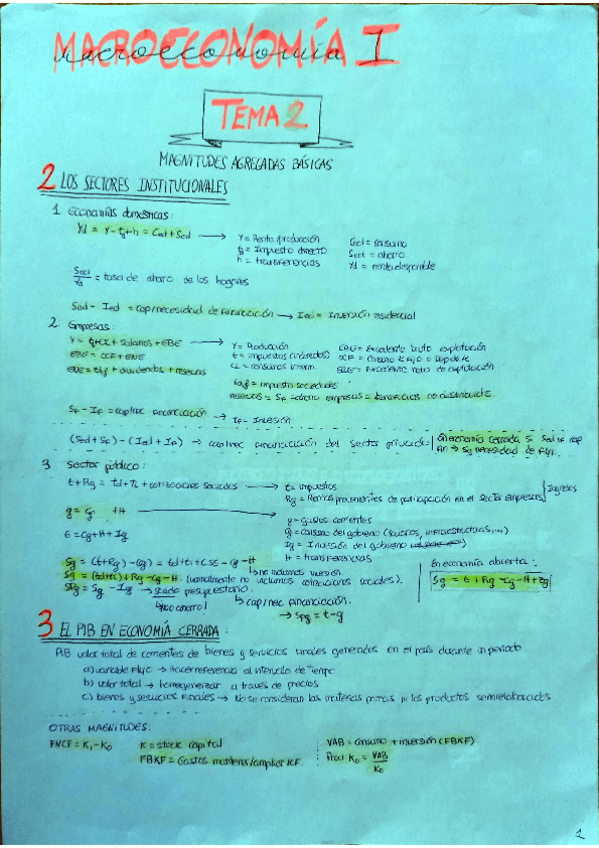 MACROECONOMÍA I
macroeconomía
TEMA 2
MAGNITUDES AGREGADAS BÁSICAS
2 LOS SECTORES INSTITUCIONALES
1 Economías domésticas:
Yd = Y - td + h = Ced + Sed → Y = Renta/producción Ced = consumo
td = Impuesto directo Sed = ahorro
h = transferencias Yd = renta disponible
Sed/Yd = tasa de ahorro de los hogares
Sed - Ied = cap/necesidad de financiación → Ied = Inversión residencial
2 Empresas:
+ salarios + EBE → Y = Producción EBE = Excedente bruto explotación
EBE = CCF + ENE t = impuestos (indirectos) CCF =
+ dividendos + reservas CI = consumos interm. ENE = Excedente neto de explotación
= impuesto sociedades
reservas = Sf = ahorro empresas = beneficios no distribuidos
Sf - If = cap/nec financiación → If = Inversión
(Sed + Sf) - (Ied + If) → cap/nec financiación del sector privado
En economía cerrada si Sed cap
fin. → Sg necesidad de fin.
3 Sector público:
t + Rg = td + ti + cotizaciones sociales → t = impuestos
Rg = Rentas provenientes de participación en el sector empresas } Ingresos
g = Cg + H → g = gastos corrientes
G = Cg + H + Ig Cg = consumo del gobierno (salarios, infraestructuras,...)
Ig = Inversión del gobierno
H = transferencias
Sg = (t + Rg) - (g) = td + ti + CSS - Cg - H
↳ no incluimos inversión
Sg = (td + ti) + Rg - Cg - H. (normalmente no incluimos cotizaciones sociales).
SPg = Sg - Ig → saldo presupuestario.
↳ no ahorro! ↳ cap/nec financiación.
→ Spg = t - g
En economía abierta:
3 EL PIB EN ECONOMÍA CERRADA:
PIB valor total de corrientes de bienes y servicios finales generados en el país durante un periodo.
a) variable flujo → hacer referencia al intervalo de tiempo
b) valor total → homogeneizar a través de precios
c) bienes y servicios finales → No se consideran las materias primas ni los productos semielaborados
OTRAS MAGNITUDES:
FNCF = K1 - K0 K = stock capital VAB = consumo + inversión (FBKF)
FBKF = Gastos mantener/ampliar KF. Prod K0 = VAB/K0
1